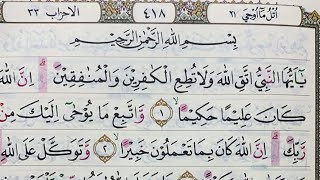 اتل ما اوحى ٢١ ٤١٨ الاحزاب ٣٣
بِسْمِ اللَّهِ الرَّحْمَٰنِ الرَّحِيمِ
يَٰٓأَيُّهَا النَّبِيُّ اتَّقِ اللَّهَ وَلَا تُطِعِ الْكَٰفِرِينَ وَالْمُنَٰفِقِينَ إِنَّ اللَّهَ
كَانَ عَلِيمًا حَكِيمًا ١ وَاتَّبِعْ مَا يُوحَىٰٓ إِلَيْكَ مِن
رَّبِّكَ إِنَّ اللَّهَ كَانَ بِمَا تَعْمَلُونَ خَبِيرًا ٢ وَتَوَكَّلْ عَلَى اللَّهِ